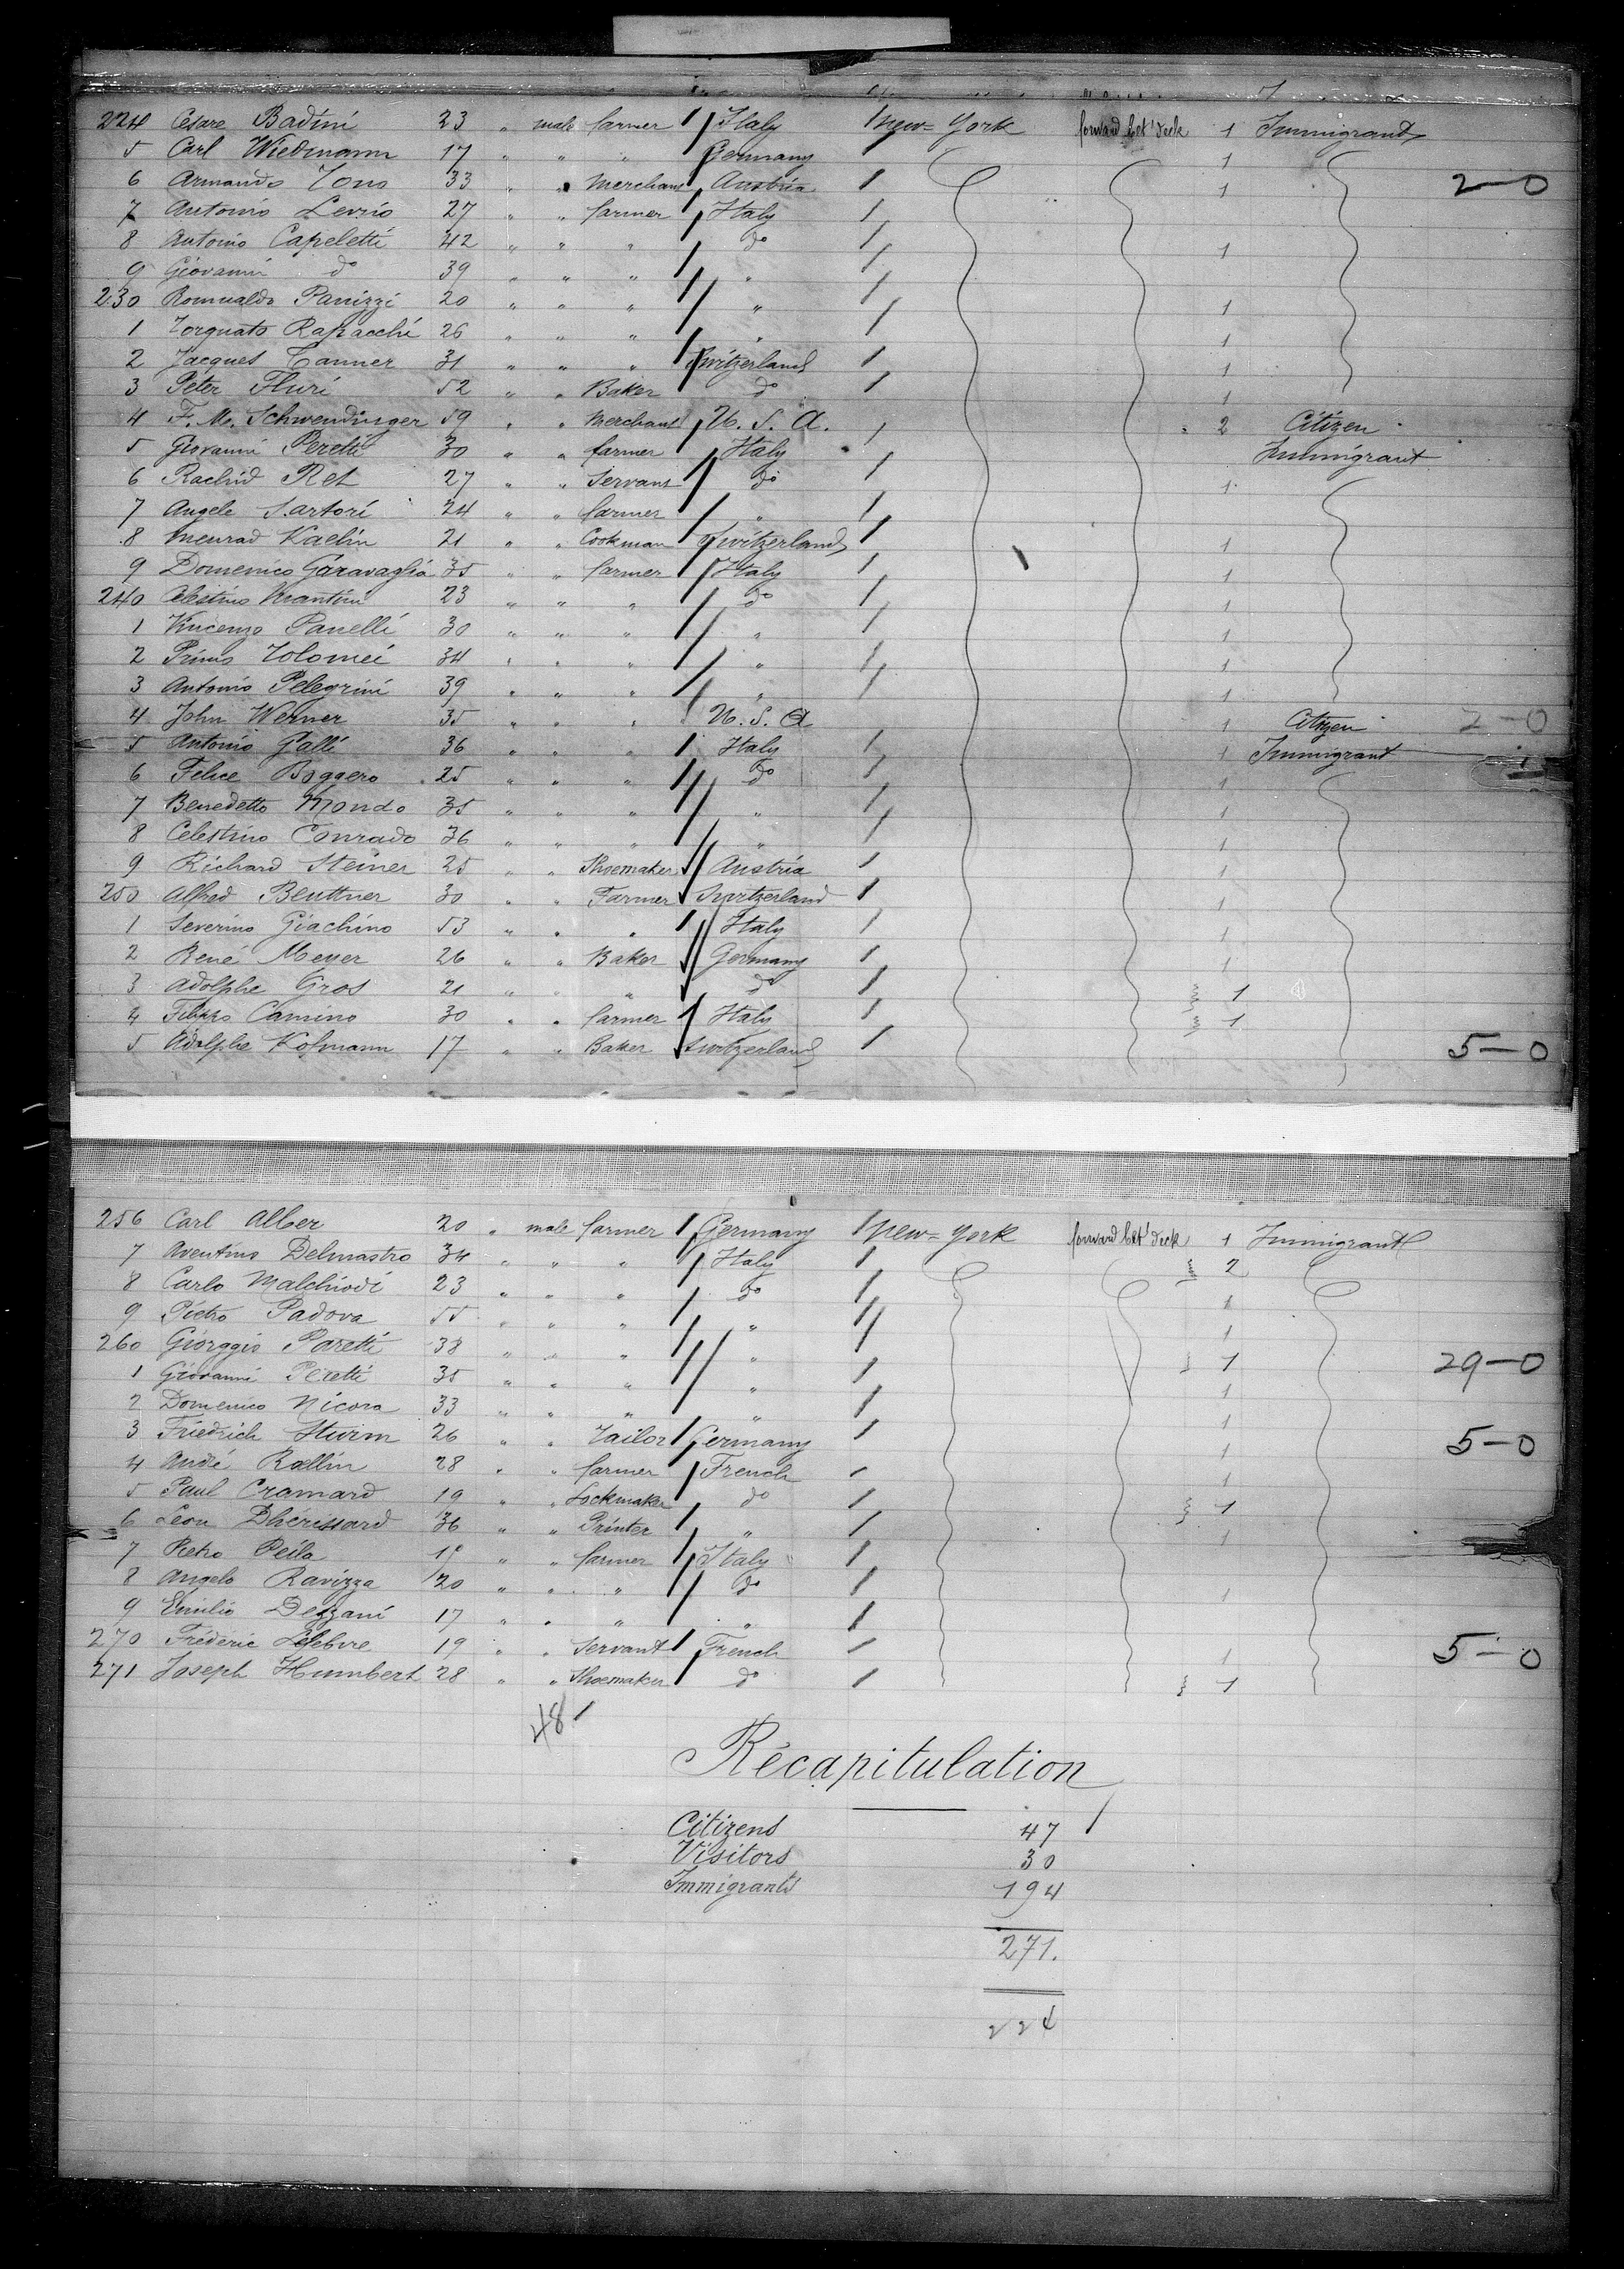 224 Cesare Badini 23 " male farmer Italy New-York forward bet' deck 1 Immigrant
5 Carl Wiedmann 17 " " " Germany 1
6 Armando Zono 33 " " Merchant Austria 1 2-0
7 Antonio Levrio 27 " " farmer Italy
8 Antonio Capeletti 42 " " " do 1
9 Giovanni do 39 " " " "
230 Romualdo Panizzi 20 " " " " 1
1 Torquato Rapacchi 26 " " " " 1
2 Jacques Tanner 31 " " " Switzerland 1
3 Peter Fluri 52 " " Baker do 1
4 F. M. Schwendinger 59 " " Merchant U. S. A. 2 Citizen
5 Giovanni Peretti 30 " " farmer Italy Immigrant
6 Rachid Ret 27 " " Servant do 1
7 Angele Sartori 24 " " farmer "
8 Meurad Kaelin 21 " " Cookman Switzerland 1
9 Domenico Garavaglia 35 " " farmer Italy 1
240 Celestino Mrantini 23 " " " do 1
1 Vincenzo Panelli 30 " " " " 1
2 Primo Tolomei 34 " " " " 1
3 Antonio Pelegrini 39 " " " " 1
4 John Werner 35 " " " U. S. A 1 Citizen 2-0
5 Antonio Galli 36 " " " Italy 1 Immigrant
6 Felice Boggero 25 " " " do 1
7 Benedetto Mondo 35 " " " " 1
8 Celestino Conrado 36 " " " " 1
9 Richard Steiner 25 " " Shoemaker Austria 1
250 Alfred Beuttner 30 " " Farmer Switzerland 1
1 Severino Giachino 53 " " " Italy 1
2 René Meyer 26 " " Baker Germany 1
3 Adolphe Gros 21 " " " do 1
4 Filippo Camino 30 " " farmer Italy 1
5 Adolphe Kofmann 17 " " Baker Switzerland 5-0
256 Carl Alber 20 " male farmer Germany New-York forward bet' deck 1 Immigrant
7 Aventino Delmastro 34 " " " Italy 2
8 Carlo Malchiodi 23 " " " do 1
9 Pietro Padova 55 " " " " 1
260 Giorggio Paretti 38 " " " " 1 29-0
1 Giovanni Peretti 35 " " " " 1
2 Domenico Nicora 33 " " " " 1
3 Friedrich Sturm 26 " " Tailor Germany 1 5-0
4 André Rallin 28 " " farmer French 1
5 Paul Cramard 19 " " Lockmaker do 1
6 Leon Dhérissard 36 " " Printer " 1
7 Pietro Peila " " farmer Italy
8 Angelo Ravizza 20 " " " do 1
9 Emilio Dezzani 17 " " " "
270 Fréderic Lefebvre 19 " " Servant French 1 5-0
271 Joseph Humbert 28 " " Shoemaker do 1
48
Récapitulation
Citizens 47
Visitors 30
Immigrants 194
271.
224